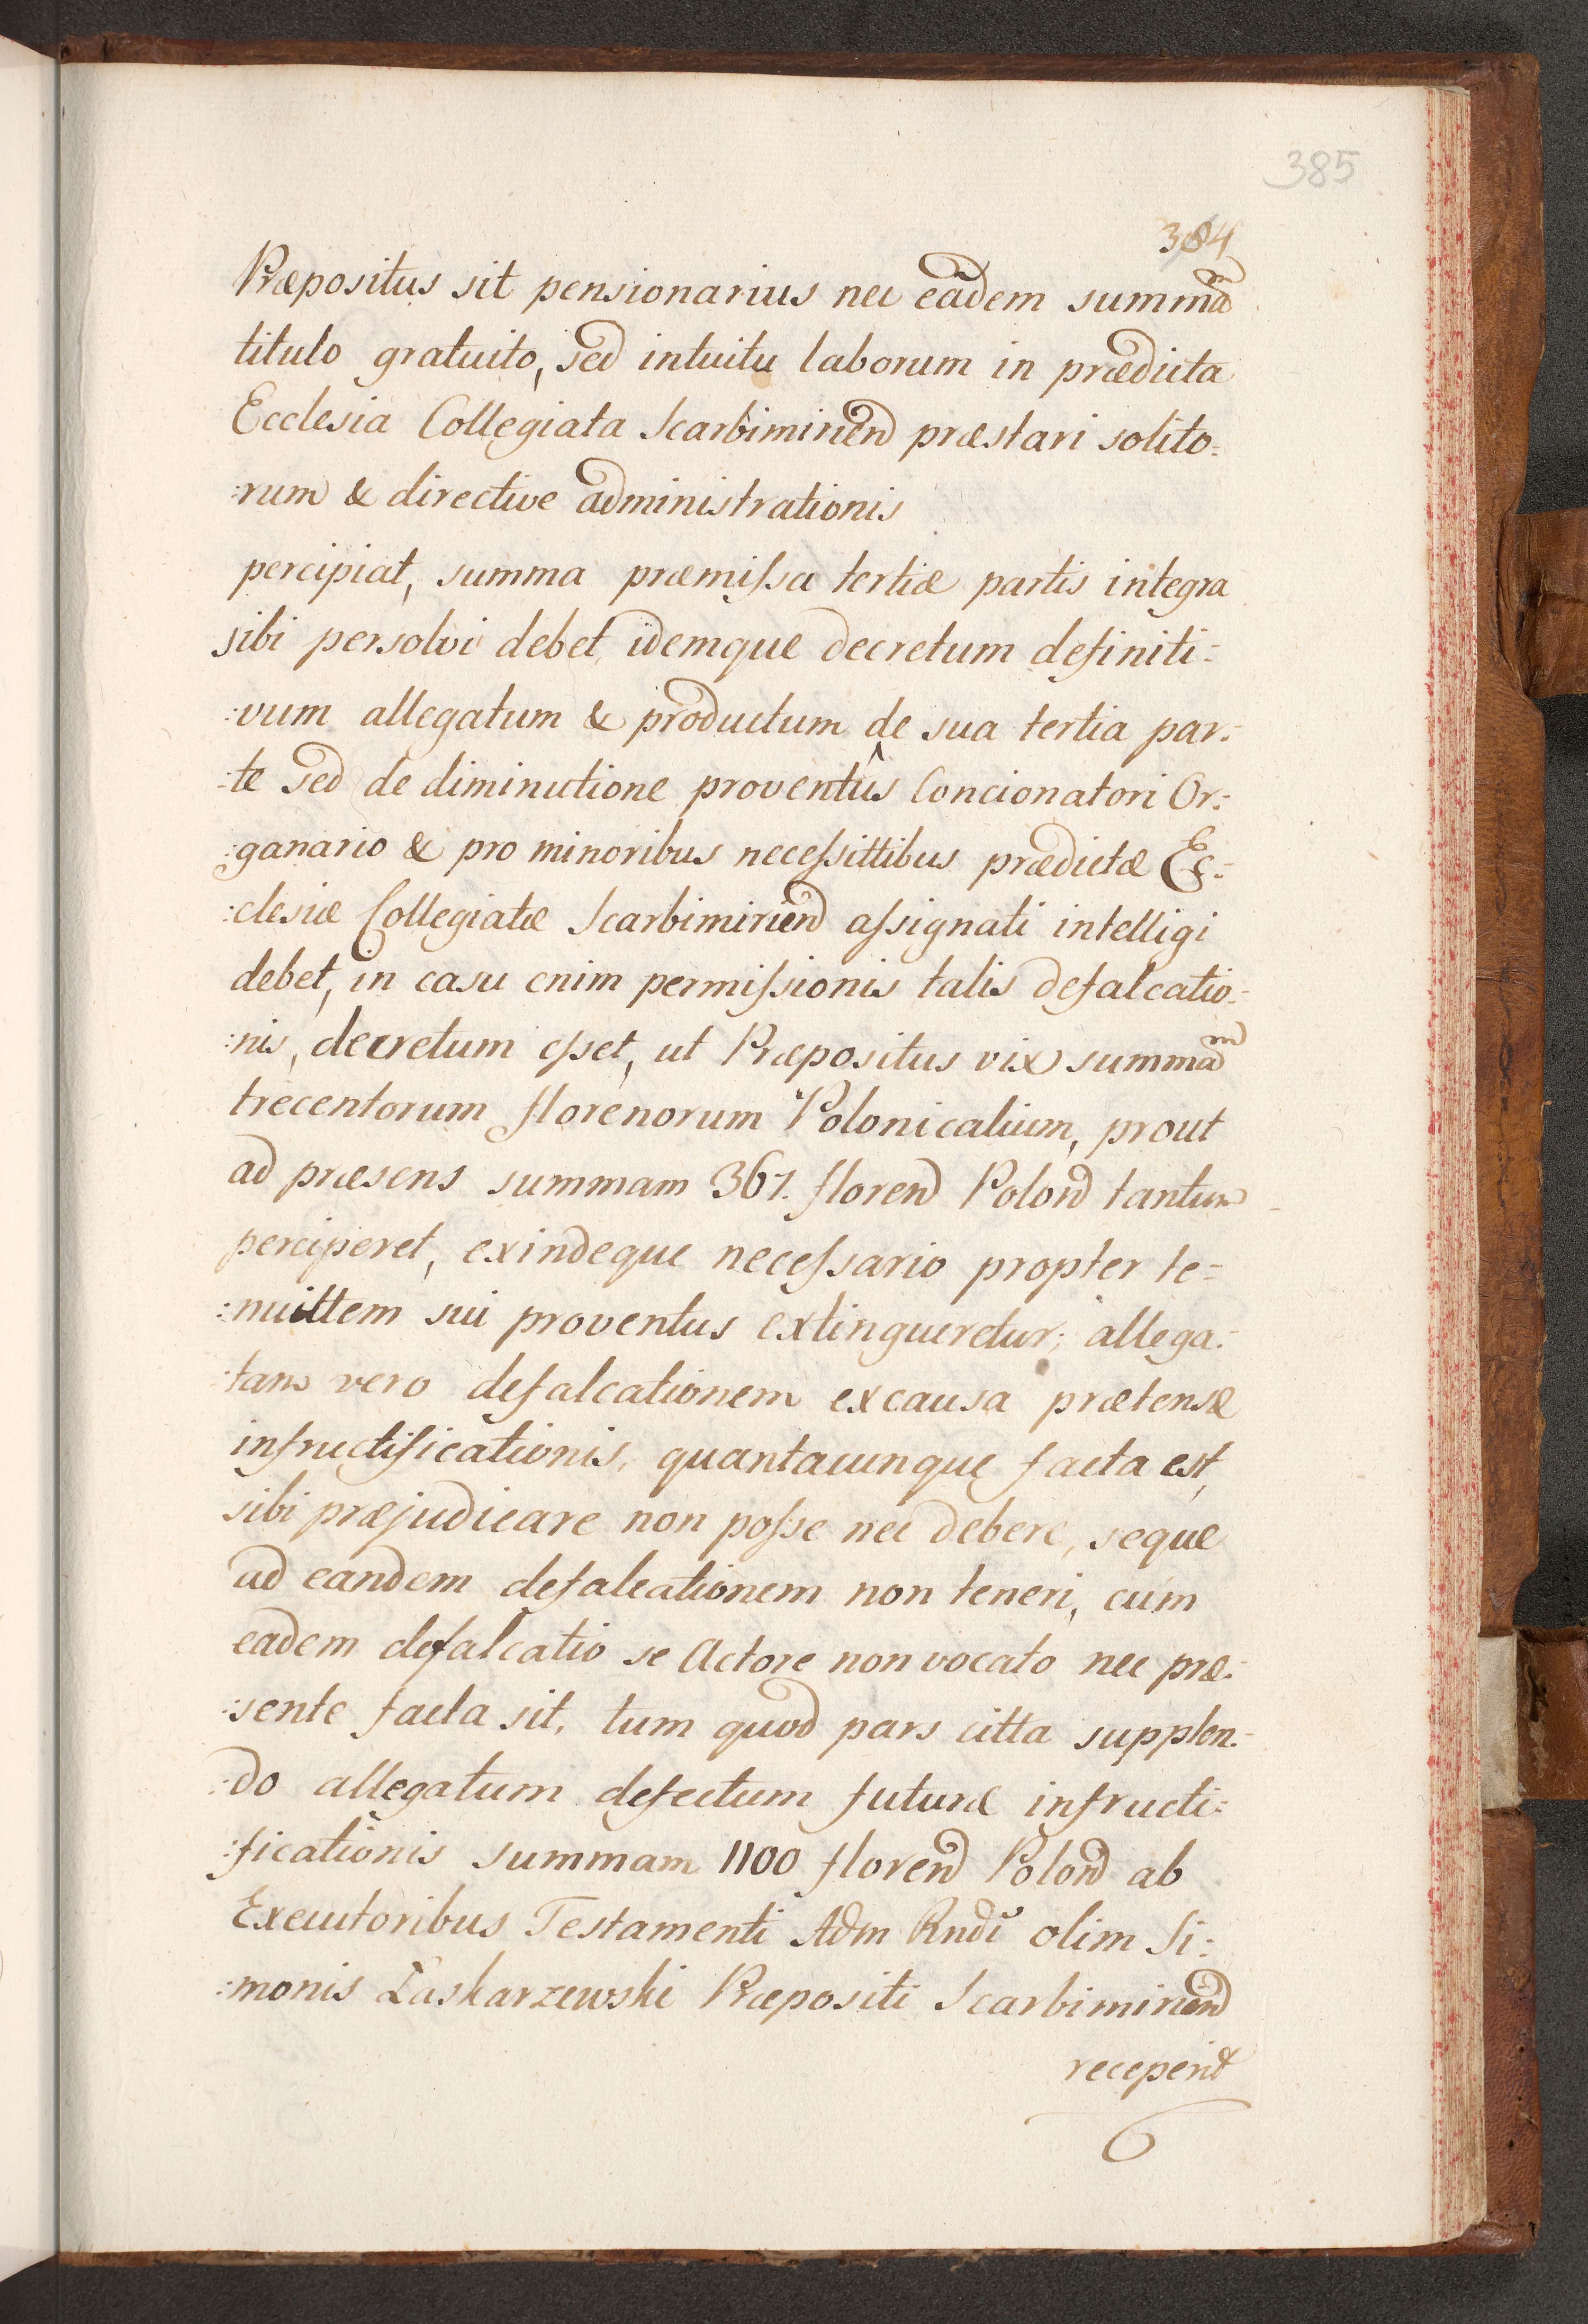 385
384
Præpositus sit pensionarius nec eãdem summam
titulo gratuito, sed intuitu laborum in prædicta
Ecclesia Collegiata Scarbimirien præstari solito=
:rum & directive administrationis
percipiat, summa præmissa tertiæ partis integra
sibi persolvi debet, idemque decretum definiti=
:vum allegatum & productum de sua tertia par=
:te sed de diminutione proventûs Concionatori Or=
:ganario & pro minoribus necessittibus prædictæ Ec=
:clesiæ Collegiatæ Scarbimirien assignati intelligi
debet, in casu enim permissionis talis defalcatio=
:nis, decretum esset, ut Præpositus vix summam
trecentorum florenorum Polonicalium, prout
ad præsens summam 367. floren Polon tantum
perciperet, exindeque necessario propter te=
:nuittem sui proventus extingueretur; allega=
:tam vero defalcationem ex causa prætensæ
infructificationis, quantacunque facta est,
sibi præjudicare non posse nec debere, seque
ad eandem defalcationem non teneri, cum
eadem defalcatio se Actore non vocato nec præ=
:sente facta sit, tum quod pars citta supplen=
:do allegatum defectum futuræ infructi=
:ficationis summam 1100 floren Polon ab
Executoribus Testamenti Adm Rndi olim Si=
:monis Laskarzewski Præpositi Scarbimirien
receperit